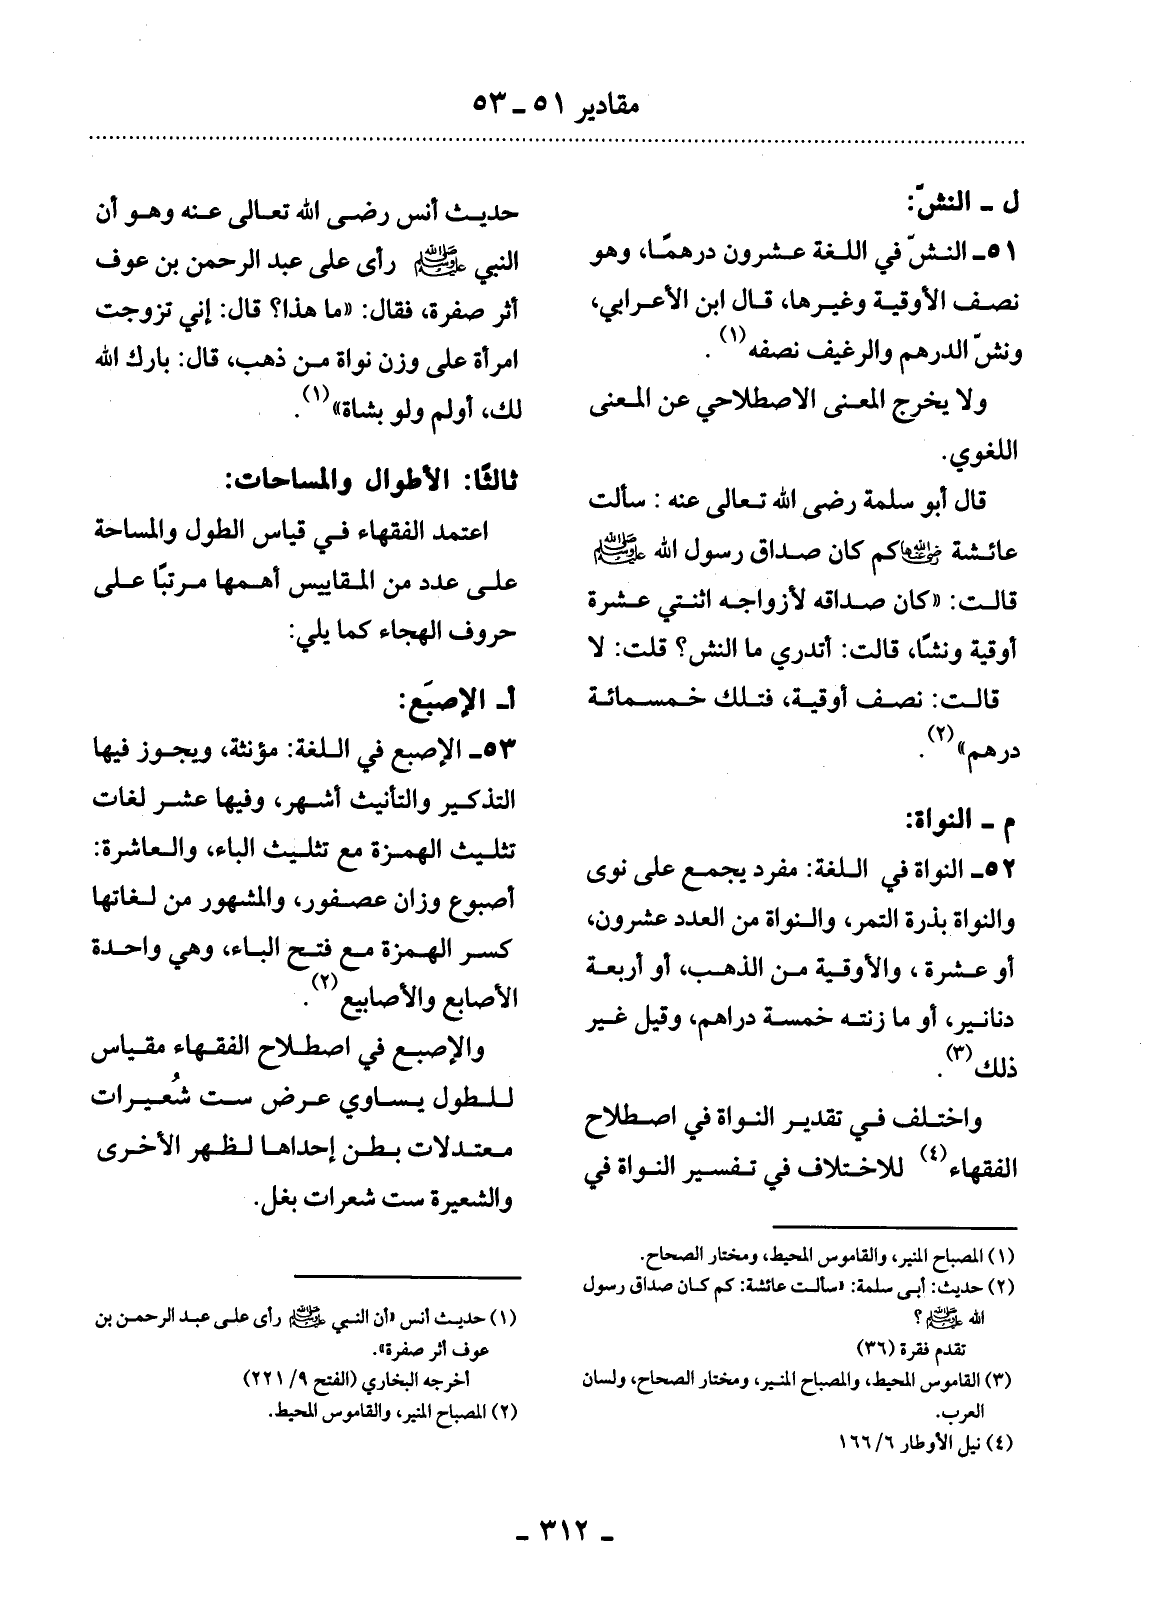 مقادير ٥١ - ٥٣
ل - النشّ:
٥١- النشّ في اللغة عشرون درهمًا، وهو
نصف الأوقية وغيرها، قال ابن الأعرابي،
ونشّ الدرهم والرغيف نصفه(١).
ولا يخرج المعنى الاصطلاحي عن المعنى
اللغوي.
قال أبو سلمة رضى الله تعالى عنه : سألت
عائشة رضي الله عنها كم كان صداق رسول الله ﷺ
قالت: «كان صداقه لأزواجه اثنتي عشرة
أوقية ونشًا، قالت: أتدري ما النش؟ قلت: لا
قالت: نصف أوقية، فتلك خمسمائة
درهم»(٢).
م - النواة:
٥٢- النواة في اللغة: مفرد يجمع على نوى
والنواة بذرة التمر، والنواة من العدد عشرون،
أو عشرة ، والأوقية من الذهب، أو أربعة
دنانير، أو ما زنته خمسة دراهم، وقيل غير
ذلك(٣).
واختلف في تقدير النواة في اصطلاح
الفقهاء(٤) للاختلاف في تفسير النواة في
(١) المصباح المنير، والقاموس المحيط، ومختار الصحاح.
(٢) حديث: أبي سلمة: «سألت عائشة: كم كان صداق رسول
الله ﷺ ؟
تقدم فقرة (٣٦)
(٣) القاموس المحيط، والمصباح المنير، ومختار الصحاح، ولسان
العرب.
(٤) نيل الأوطار ٦/ ١٦٦
حديث أنس رضى الله تعالى عنه وهو أن
النبي ﷺ رأى على عبد الرحمن بن عوف
أثر صفرة، فقال: «ما هذا؟ قال: إني تزوجت
امرأة على وزن نواة من ذهب، قال: بارك الله
لك، أولم ولو بشاة»(١).
ثالثًا: الأطوال والمساحات:
اعتمد الفقهاء في قياس الطول والمساحة
على عدد من المقاييس أهمها مرتبًا على
حروف الهجاء كما يلي:
أ- الإصبَع:
٥٣- الإصبع في اللغة: مؤنثة، ويجوز فيها
التذكير والتأنيث أشهر، وفيها عشر لغات
تثليث الهمزة مع تثليث الباء، والعاشرة:
أصبوع وزان عصفور، والمشهور من لغاتها
كسر الهمزة مع فتح الباء، وهي واحدة
الأصابع والأصابيع(٢).
والإصبع في اصطلاح الفقهاء مقياس
للطول يساوي عرض ست شُعيرات
معتدلات بطن إحداها لظهر الأخرى
والشعيرة ست شعرات بغل.
(١) حديث أنس «أن النبي ﷺ رأى على عبد الرحمن بن
عوف أثر صفرة».
أخرجه البخاري (الفتح ٩/ ٢٢١)
(٢) المصباح المنير، والقاموس المحيط.
- ٣١٢ -